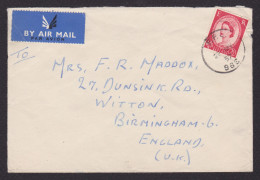 BY AIR MAIL
PAR AVION
TO
MRS. F. R. MADDEX,
27, DUNSINK RD.,
WITTON,
BIRMINGHAM-6.
ENGLAND,
(U.K.)
985